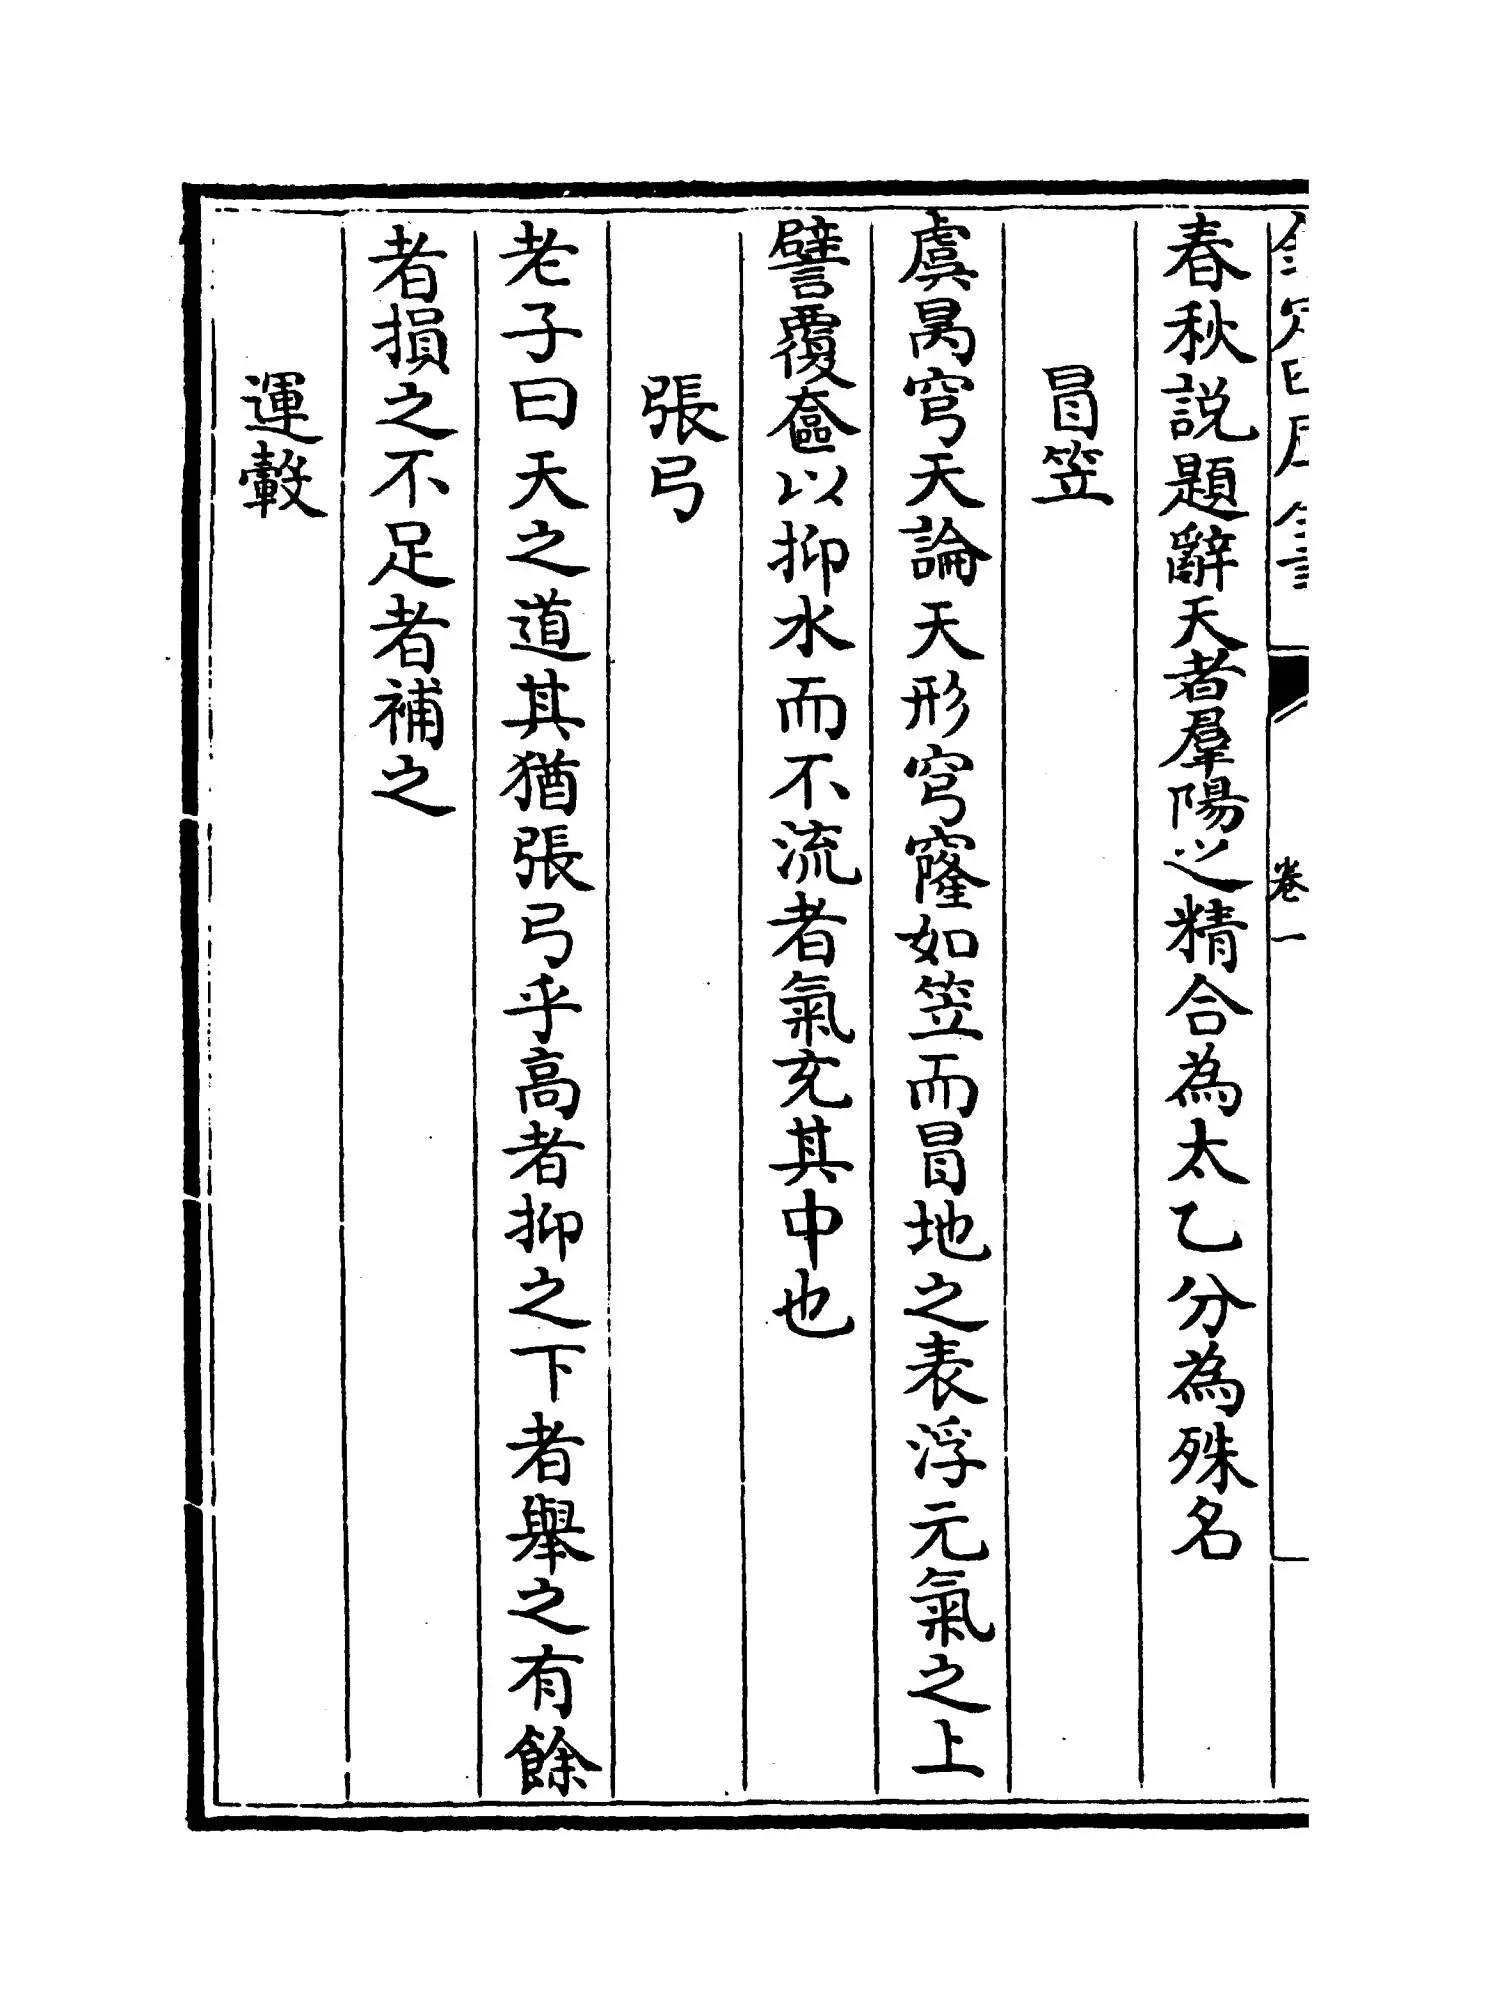 欽定四庫全書 卷一
春秋説題辭天者羣陽之精合為太乙分為殊名
冒笠
虞昺穹天論天形穹窿如笠而冒地之表浮元氣之上
譬覆奩以抑水而不流者氣充其中也
張弓
老子曰天之道其猶張弓乎高者抑之下者舉之有餘
者損之不足者補之
運轂